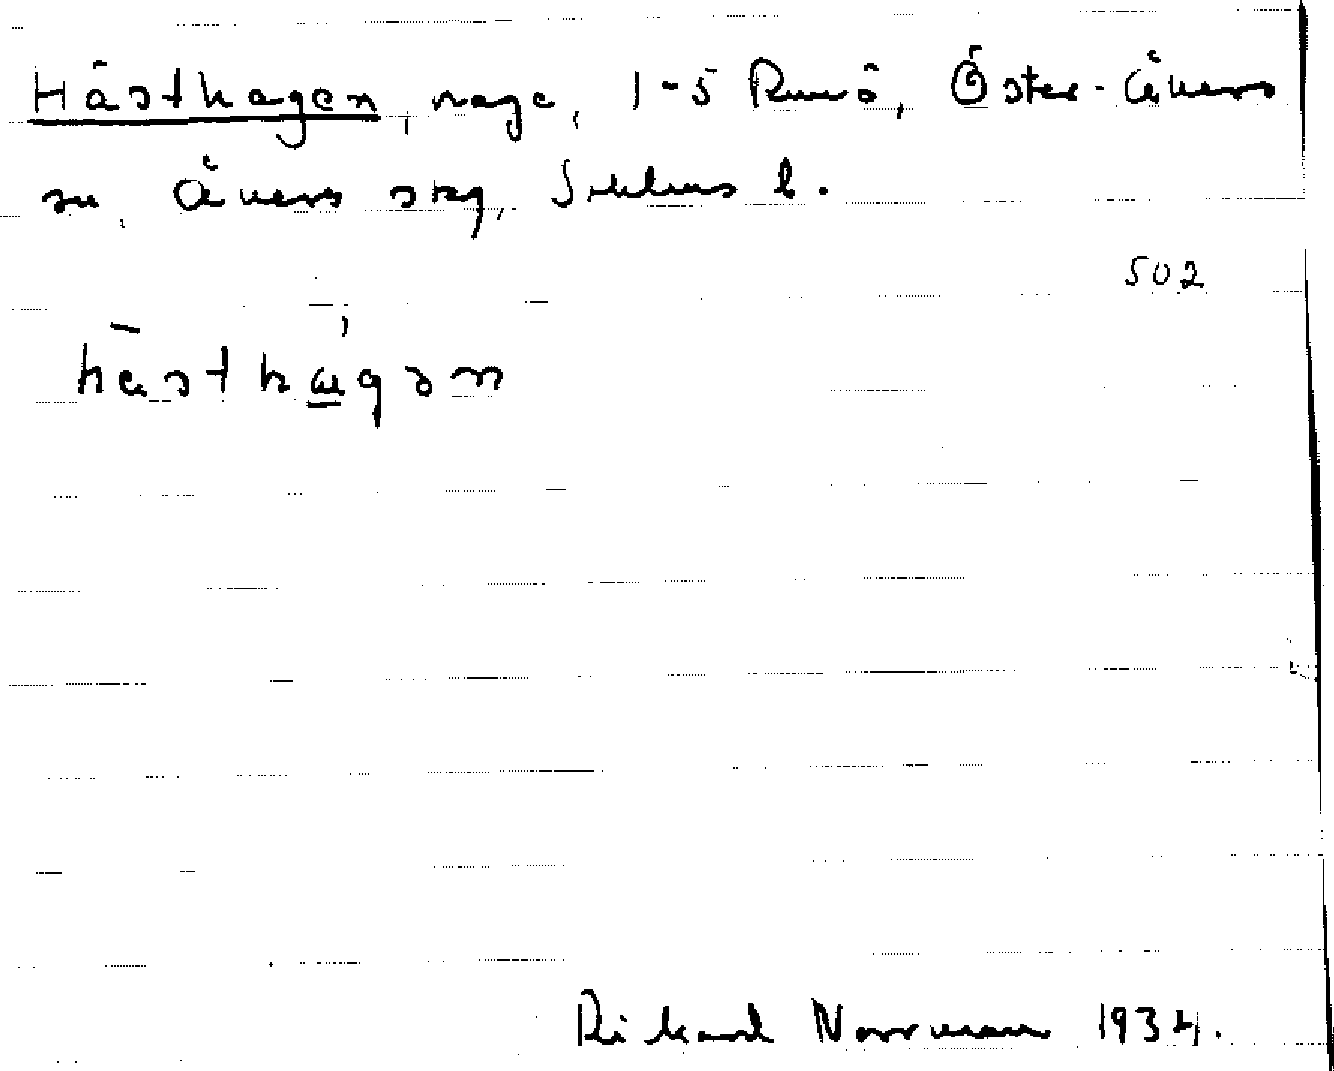 Hästhagen, hage, 1-5 Runö, Öster-Åkers
sn, Åkers skg, Sthlms l.
502
hästhagən
Rikard Norrman 1934.